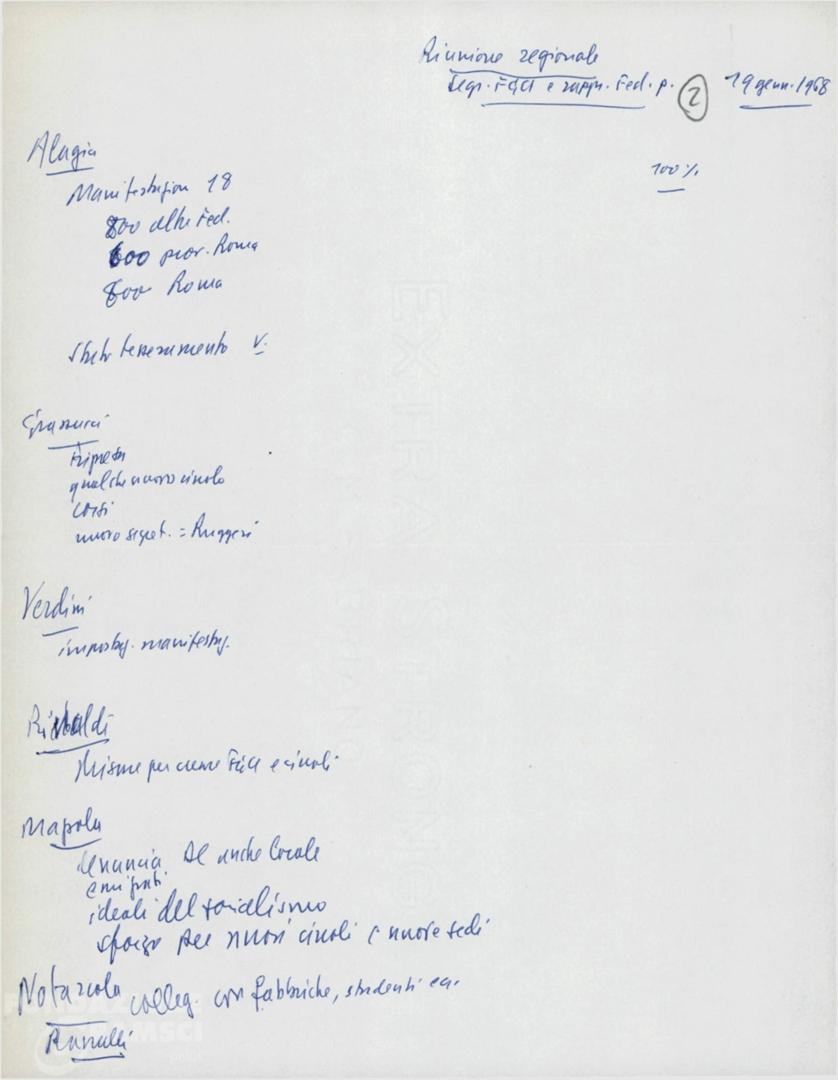 Riunione regionale
Segr. FGCI e rapp. Fed. p. 2 19 genn. 1968
100%
Alagia
Manifestazion 18
800 altre Fed.
600 prov. Roma
800 Roma
Stato tesseramento V.
Grassucci
ripresa
qualche nuovo circolo
corsi
nuovo segret. = Ruggeri
Verdini
impostaz. manifestaz.
Rinaldi
Misure per creare FGCI e circoli
Mapola
denuncia DC anche locale
emigrati
ideali del socialismo
sforzo per nuovi circoli e nuove sedi
Notazola colleg. con fabbriche, studenti ecc.
EXTRA STRONG
FONDAZIONE
GRAMSCI